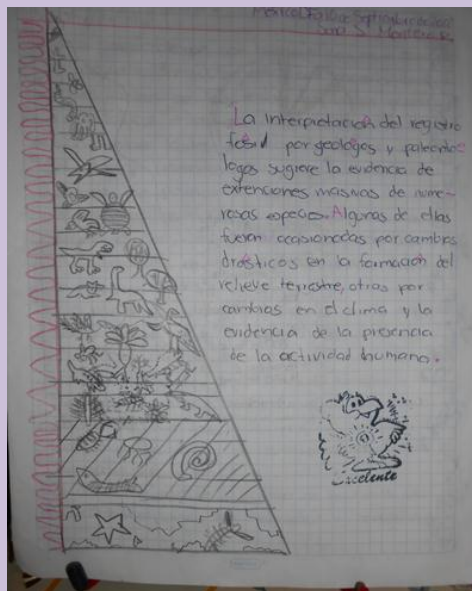 La interpretación del registro
fosil por geologos y paleonto-
logos sugiere la evidencia de
extenciones masivas de nume-
rosas especies. Algunas de ellas
fueron ocasionadas por cambios
drásticos en la formación del
relieve terrestre, otras por
cambios en el clima y la
evidencia de la presencia
de la actividad humana.
Excelente